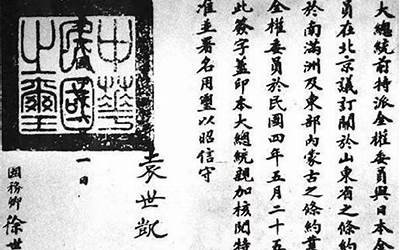 大總統前特派全權委員與日本全
員在北京議訂關於山東省之條約
於南滿洲及東部內蒙古之條約業
全權委員於民國四年五月二十五
此簽字蓋印本大總統親加核閱特
准並署名用璽以昭信守
袁世凱
中華民國之璽
一日
國務卿 徐世